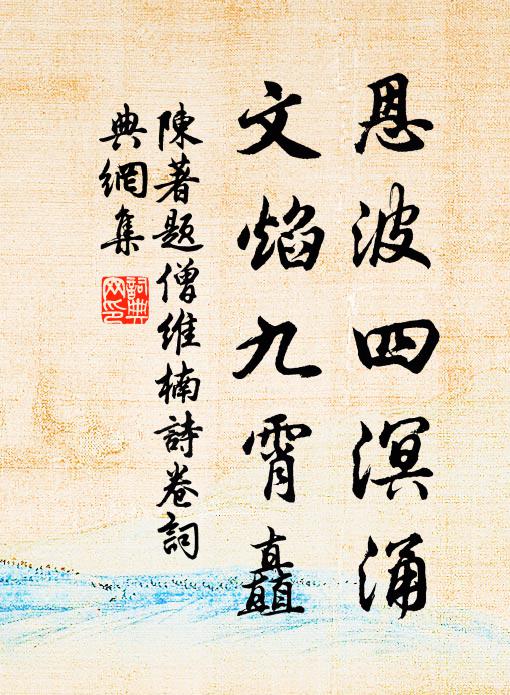 恩波四溟涌
文焰九霄矗
陳著題僧維楠詩卷詞
典網集
詞典
网印